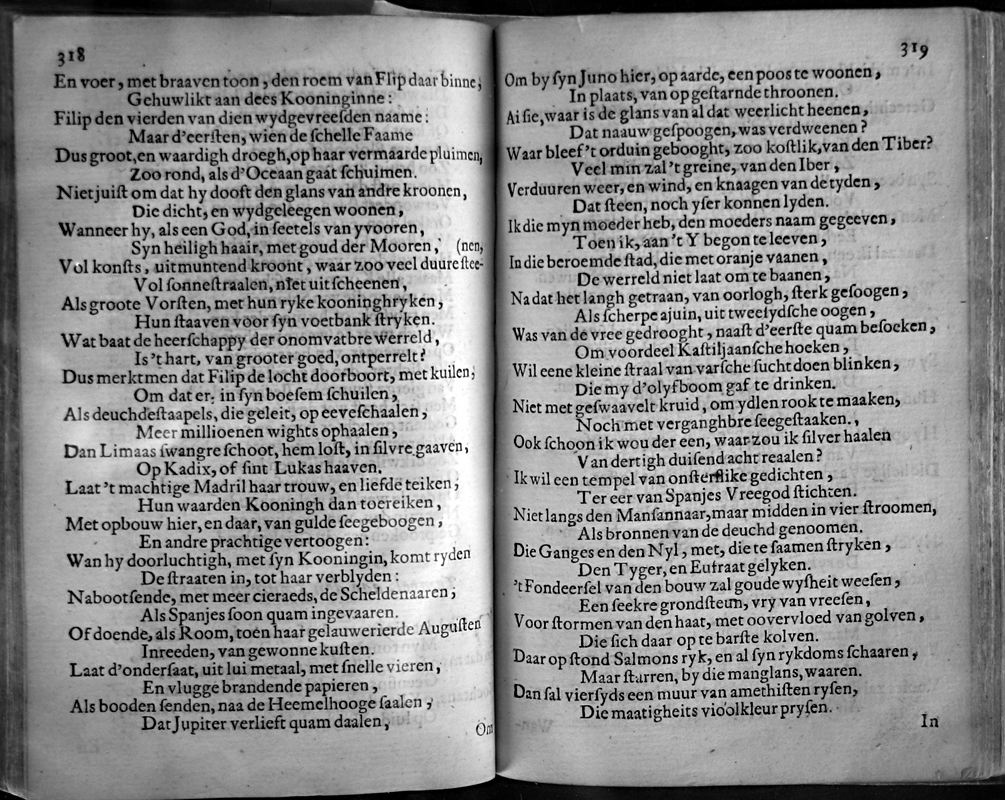 318
En voer, met braaven toon, den roem van Flip daar binne,
Gehuwlikt aan dees Kooninginne:
Filip den vierden van dien wydgevreeſden naame:
Maar d'eerſten, wien de ſchelle Faame
Dus groot, en waardigh droegh, op haar vermaarde pluimen,
Zoo rond, als d'Oceaan gaat ſchuimen.
Niet juiſt om dat hy dooft den glans van andre kroonen,
Die dicht, en wydgeleegen woonen,
Wanneer hy, als een God, in ſeetels van yvooren,
Syn heiligh haair, met goud der Mooren, (nen,
Vol konſts, uitmuntend kroont, waar zoo veel duure ſtee-
Vol ſonneſtraalen, niet uitſcheenen,
Als groote Vorſten, met hun ryke kooninghryken,
Hun ſtaaven voor ſyn voetbank ſtryken.
Wat baat de heerſchappy der onomvatbre werreld,
Is 't hart, van grooter goed, ontperrelt?
Dus merktmen dat Filip de locht doorboort, met kuilen,
Om dat er, in ſyn boeſem ſchuilen,
Als deuchdeſtaapels, die geleit, op eeveſchaalen,
Meer millioenen wights ophaalen,
Dan Limaas ſwangre ſchoot, hem loſt, in ſilvre gaaven,
Op Kadix, of ſint Lukas haaven.
Laat 't machtige Madril haar trouw, en liefde teiken,
Hun waarden Kooningh dan toereiken,
Met opbouw hier, en daar, van gulde ſeegeboogen,
En andre prachtige vertoogen:
Wan hy doorluchtigh, met ſyn Kooningin, komt ryden
De ſtraaten in, tot haar verblyden:
Nabootſende, met meer cieraeds, de Scheldenaaren,
Als Spanjes ſoon quam ingevaaren.
Of doende, als Room, toen haar gelauwerierde Auguſten
Inreeden, van gewonne kuſten.
Laat d'onderſaat, uit lui metaal, met ſnelle vieren,
En vlugge brandende papieren,
Als booden ſenden, naa de Heemelhooge ſaalen,
Dat Jupiter verlieft quam daalen,
Om
319
Om by ſyn Juno hier, op aarde, een poos te woonen,
In plaats, van opgeſtarnde throonen.
Ai ſie, waar is de glans van al dat weerlicht heenen,
Dat naauw geſpoogen, was verdweenen?
Waar bleef 't orduin gebooght, zoo koſtlik, van den Tiber?
Veel min zal 't greine, van den Iber,
Verduuren weer, en wind, en knaagen van de tyden,
Dat ſteen, noch yſer konnen lyden.
Ik die myn moeder heb, den moeders naam gegeeven,
Toen ik, aan 't Y begon te leeven,
In die beroemde ſtad, die met oranje vaanen,
De werreld niet laat om te baanen,
Na dat het langh getraan, van oorlogh, ſterk geſoogen,
Als ſcherpe ajuin, uit tweeſydſche oogen,
Was van de vree gedrooght, naaſt d'eerſte quam beſoeken,
Om voordeel Kaſtiljaanſche hoeken,
Wil eene kleine ſtraal van varſche ſucht doen blinken,
Die my d'olyfboom gaf te drinken.
Niet met geſwaavelt kruid, om ydlen rook te maaken,
Noch met verganghbre ſeegeſtaaken.,
Ook ſchoon ik wou der een, waar zou ik ſilver haalen
Van dertigh duiſend acht reaalen?
Ik wil een tempel van onſterflike gedichten,
Ter eer van Spanjes Vreegod ſtichten.
Niet langs den Manſannaar, maar midden in vier ſtroomen,
Als bronnen van de deuchd genoomen.
Die Ganges en den Nyl, met, die te ſaamen ſtryken,
Den Tyger, en Eufraat gelyken.
't Fondeerſel van den bouw zal goude wyſheit weeſen,
Een ſeekre grondſteun, vry van vreeſen,
Voor ſtormen van den haat, met oovervloed van golven,
Die ſich daar op te barſte kolven.
Daar op ſtond Salmons ryk, en al ſyn rykdoms ſchaaren,
Maar ſtarren, by die manglans, waaren.
Dan ſal vierſyds een muur van amethiſten ryſen,
Die maatigheits vioolkleur pryſen.
In